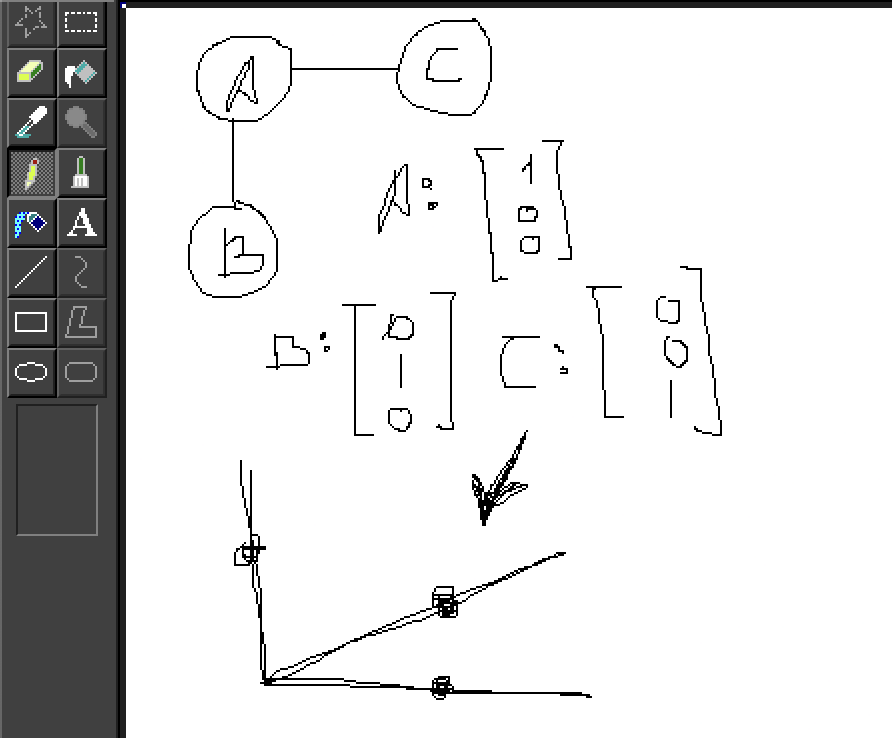 A C
B
A: [1 0 0]
B: [0 1 0] C: [0 0 1]
A